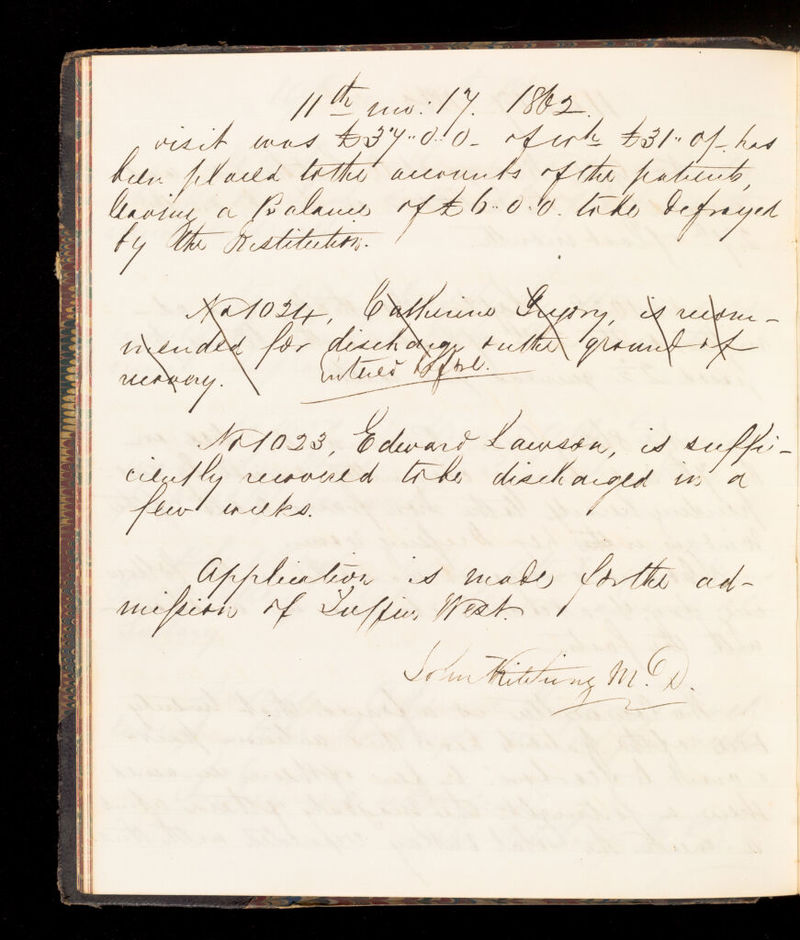 11th mo: 17. 1862.
visit was £37..0..0- of wch £31.. Of- has
been placed to the accounts of the patients,
leaving a Balance of £6..0..0. to be defrayed
by the Institution.
No 1024, Catherine Gregory, is recom-
mended for discharge on the ground of
recovery. Entered before.
No 1023, Edward Lawson, is suffi-
ciently recovered to be discharged in a
few weeks.
Application is made for the ad-
mission of West.
John Kitching M.D.